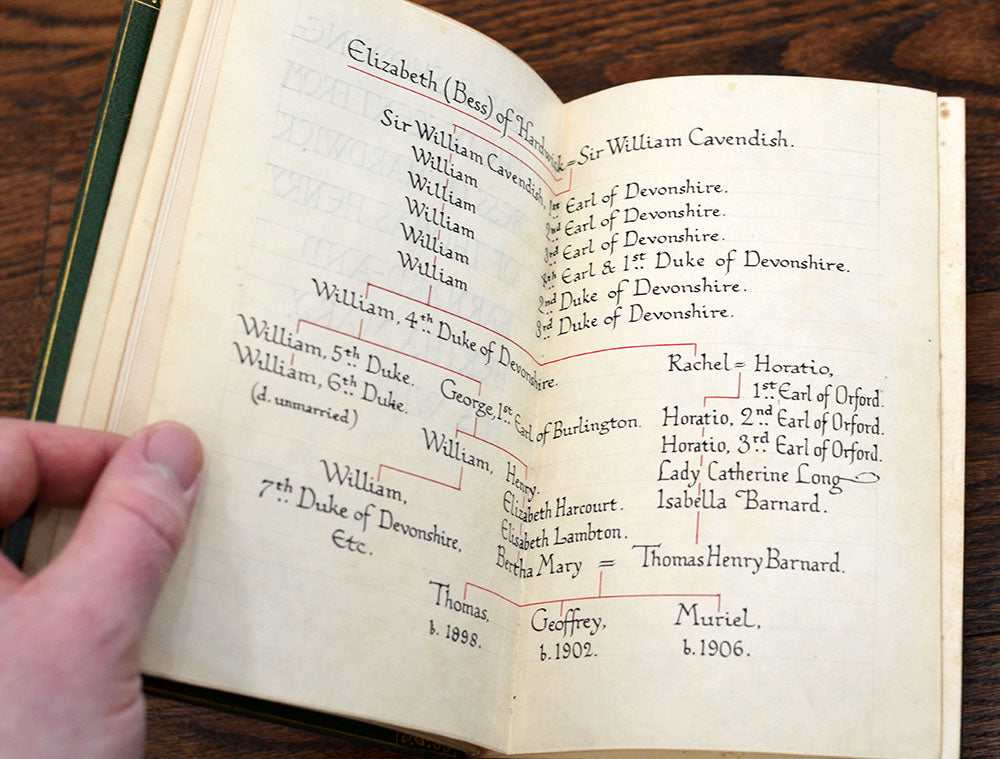 Elizabeth (Bess) of Hardwick = Sir William Cavendish.
Sir William Cavendish, 1st Earl of Devonshire.
William 2nd Earl of Devonshire.
William 3rd Earl of Devonshire.
William 4th Earl & 1st Duke of Devonshire.
William 2nd Duke of Devonshire.
William 3rd Duke of Devonshire.
William, 4th Duke of Devonshire.
Rachel = Horatio,
1st Earl of Orford.
William, 5th Duke.
William, 6th Duke.
(d. unmarried)
George, 1st Earl of Burlington.
Horatio, 2nd Earl of Orford.
Horatio, 3rd Earl of Orford.
William, Henry.
Lady Catherine Long
William,
7th Duke of Devonshire,
Etc.
Elizabeth Harcourt.
Isabella Barnard.
Elisabeth Lambton.
Bertha Mary = Thomas Henry Barnard.
Thomas,
b. 1898.
Geoffrey,
b. 1902.
Muriel,
b. 1906.